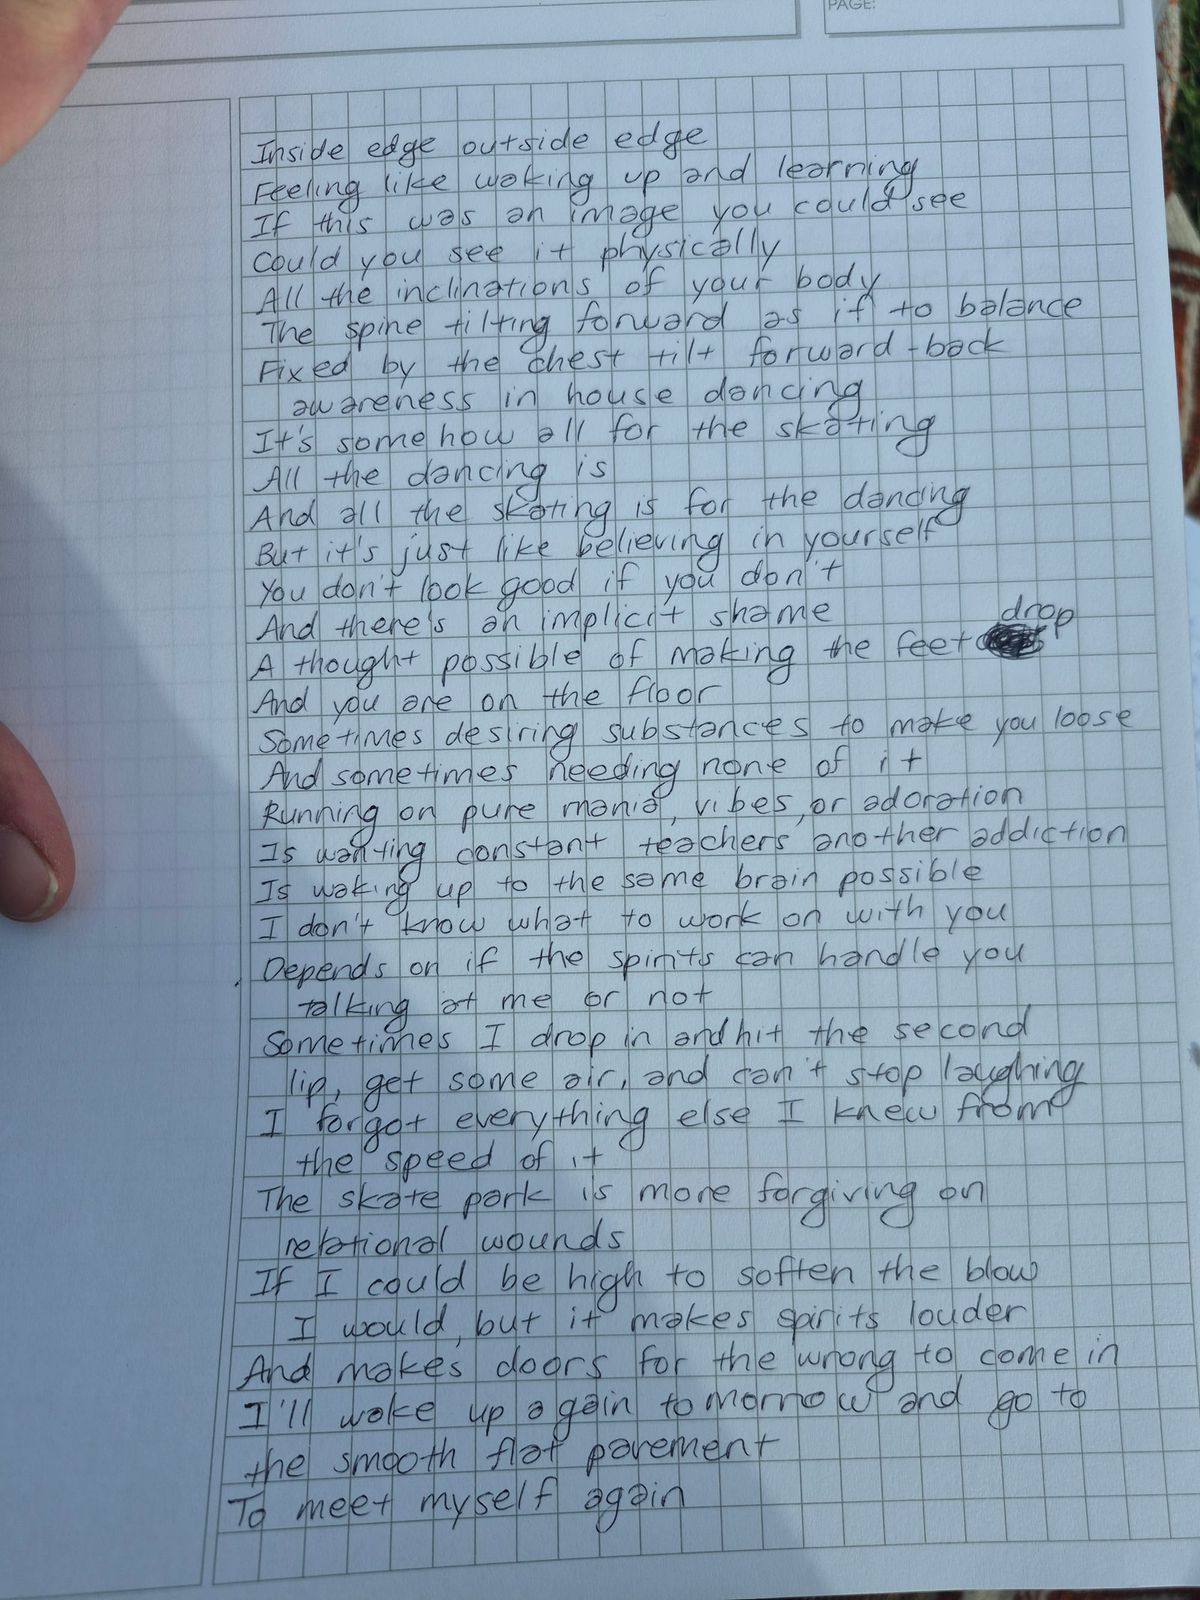 PAGE:
Inside edge outside edge
Feeling like waking up and learning
If this was an image you could see
Could you see it physically
All the inclinations of your body
The spine tilting forward as if to balance
Fixed by the chest tilt forward-back
awareness in house dancing
It's somehow all for the skating
All the dancing is
And all the skating is for the dancing
But it's just like believing in yourself
You don't look good if you don't
And there's an implicit shame
A thought possible of making the feet drop
And you are on the floor
Sometimes desiring substances to make you loose
And sometimes needing none of it
Running on pure mania, vibes, or adoration
Is wanting constant teachers another addiction
Is waking up to the same brain possible
I don't know what to work on with you
Depends on if the spirits can handle you
talking at me or not
Sometimes I drop in and hit the second
lip, get some air, and can't stop laughing
I forgot everything else I knew from
the speed of it
The skate park is more forgiving on
relational wounds
If I could be high to soften the blow
I would, but it makes spirits louder
And makes doors for the wrong to come in
I'll wake up again tomorrow and go to
the smooth flat pavement
To meet myself again